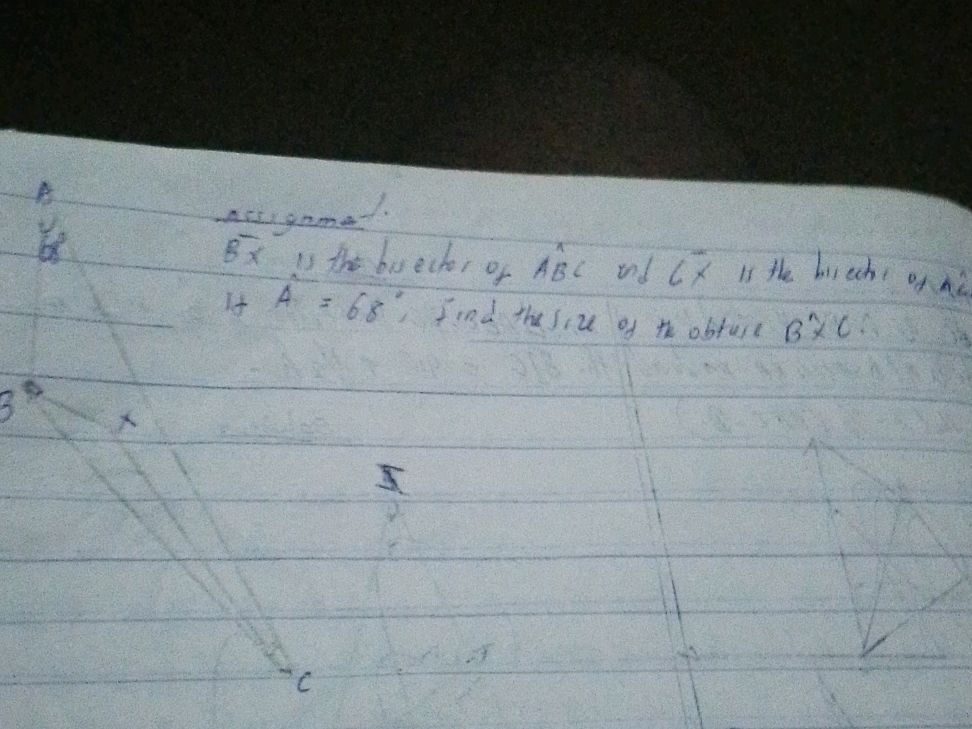 A
68°
B
X
C
assignment.
BX is the bisector of ABC and CX is the bisector of
If A = 68°, find the size of the obtuse BXC.